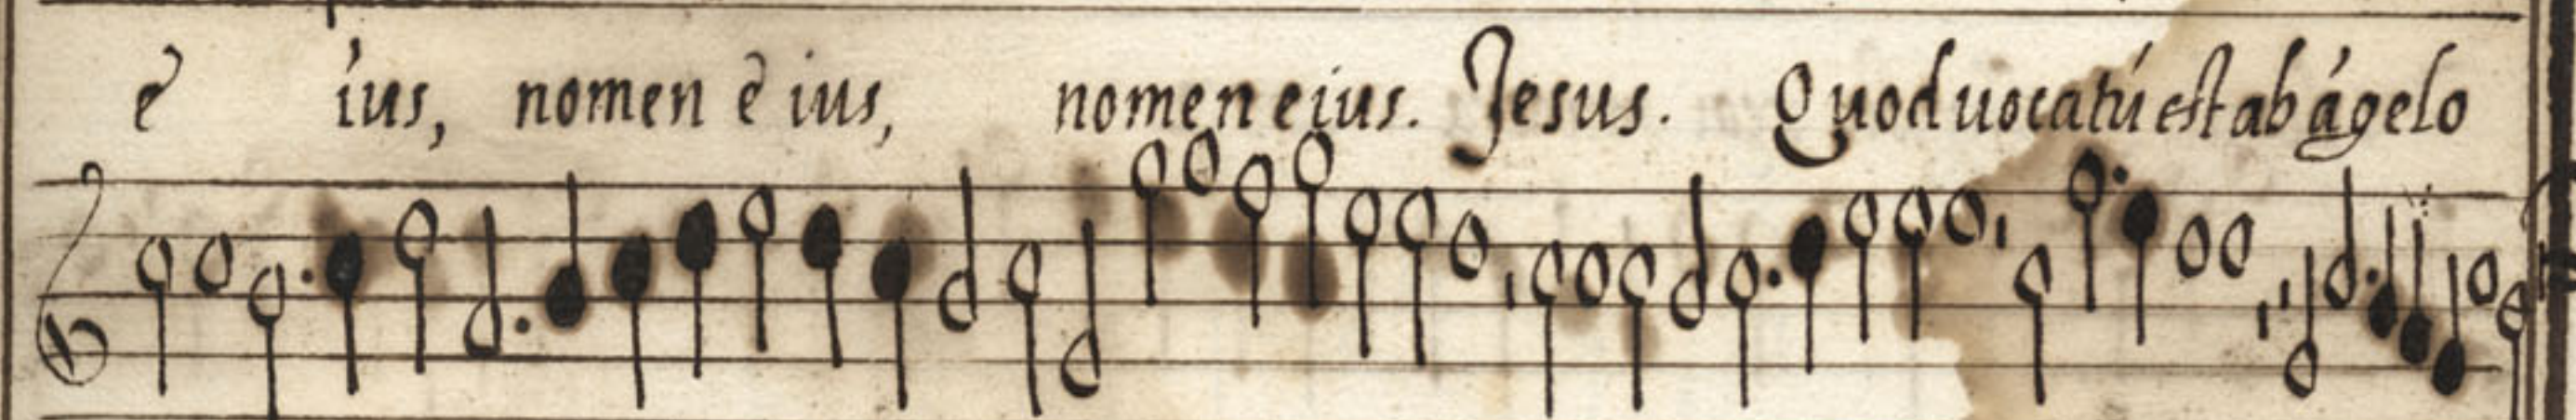 e ius, nomen e ius, nomen eius. Jesus. Quod uocatú est ab ágelo